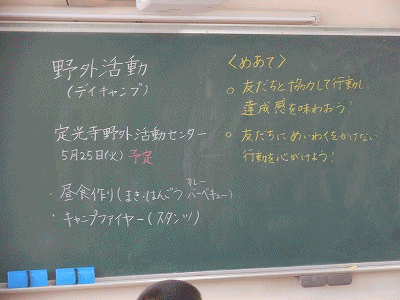 野外活動
(デイキャンプ)
定光寺野外活動センター
5月25日(火) 予定
・昼食作り(まき・はんごう カレー バーベキュー)
・キャンプファイヤー(スタンツ)
<めあて>
○ 友だちと協力して行動し、
達成感を味わおう!
○ 友だちにめいわくをかけない
行動を心がけよう!